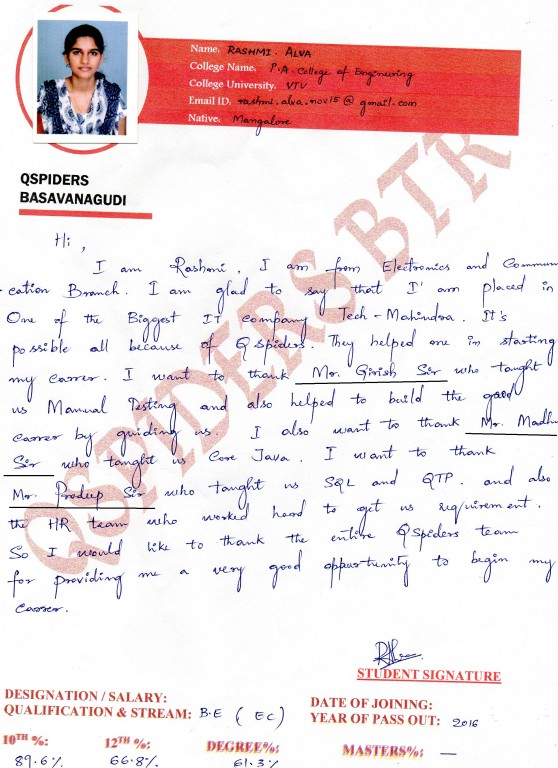 Name. RASHMI. ALVA
College Name. P.A. College of Engineering
College University. VTU
Email ID. rashmi.alva.nov15@gmail.com
Native. Mangalore
QSPIDERS
BASAVANAGUDI
QSPIDERS BTR
Hi,
I am Rashmi. I am from Electronics and Commun
-cation Branch. I am glad to say that I'am placed in
One of the Biggest IT company Tech-Mahindra. It's
possible all because of QSpiders. They helped one in starting
my career. I want to thank Mr. Girish Sir who taught
us Manual Testing and also helped to build the good
career by guiding us. I also want to thank Mr. Madhu
Sir who taught us Core Java. I want to thank
Mr. Pradeep Sir who taught us SQL and QTP. and also
the HR team who worked hard to get us requirement.
So I would like to thank the entire QSpiders team
for providing me a very good oppurtunity to begin my
career.
STUDENT SIGNATURE
DESIGNATION / SALARY:
QUALIFICATION & STREAM: B.E (EC)
DATE OF JOINING:
YEAR OF PASS OUT: 2016
10TH %: 12TH %: DEGREE%: MASTERS%: —
89.6% 66.8% 61.3%